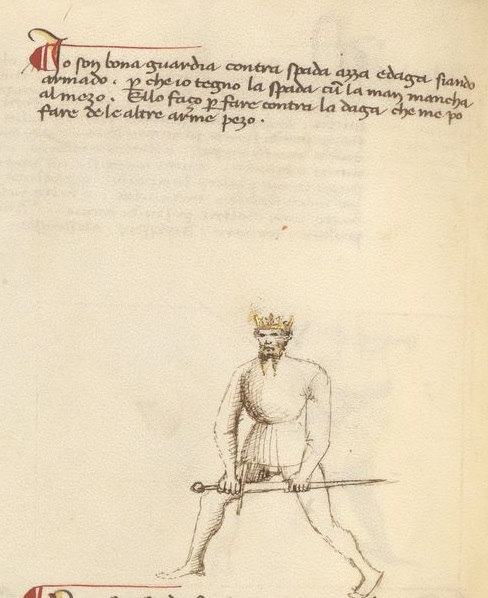 Io son bona guardia contra spada azza e daga siando
armado. p che io tegno la spada cū la man mancha
al mezo. E llo faço p fare contra la daga che me po
fare de le altre arme pezo.